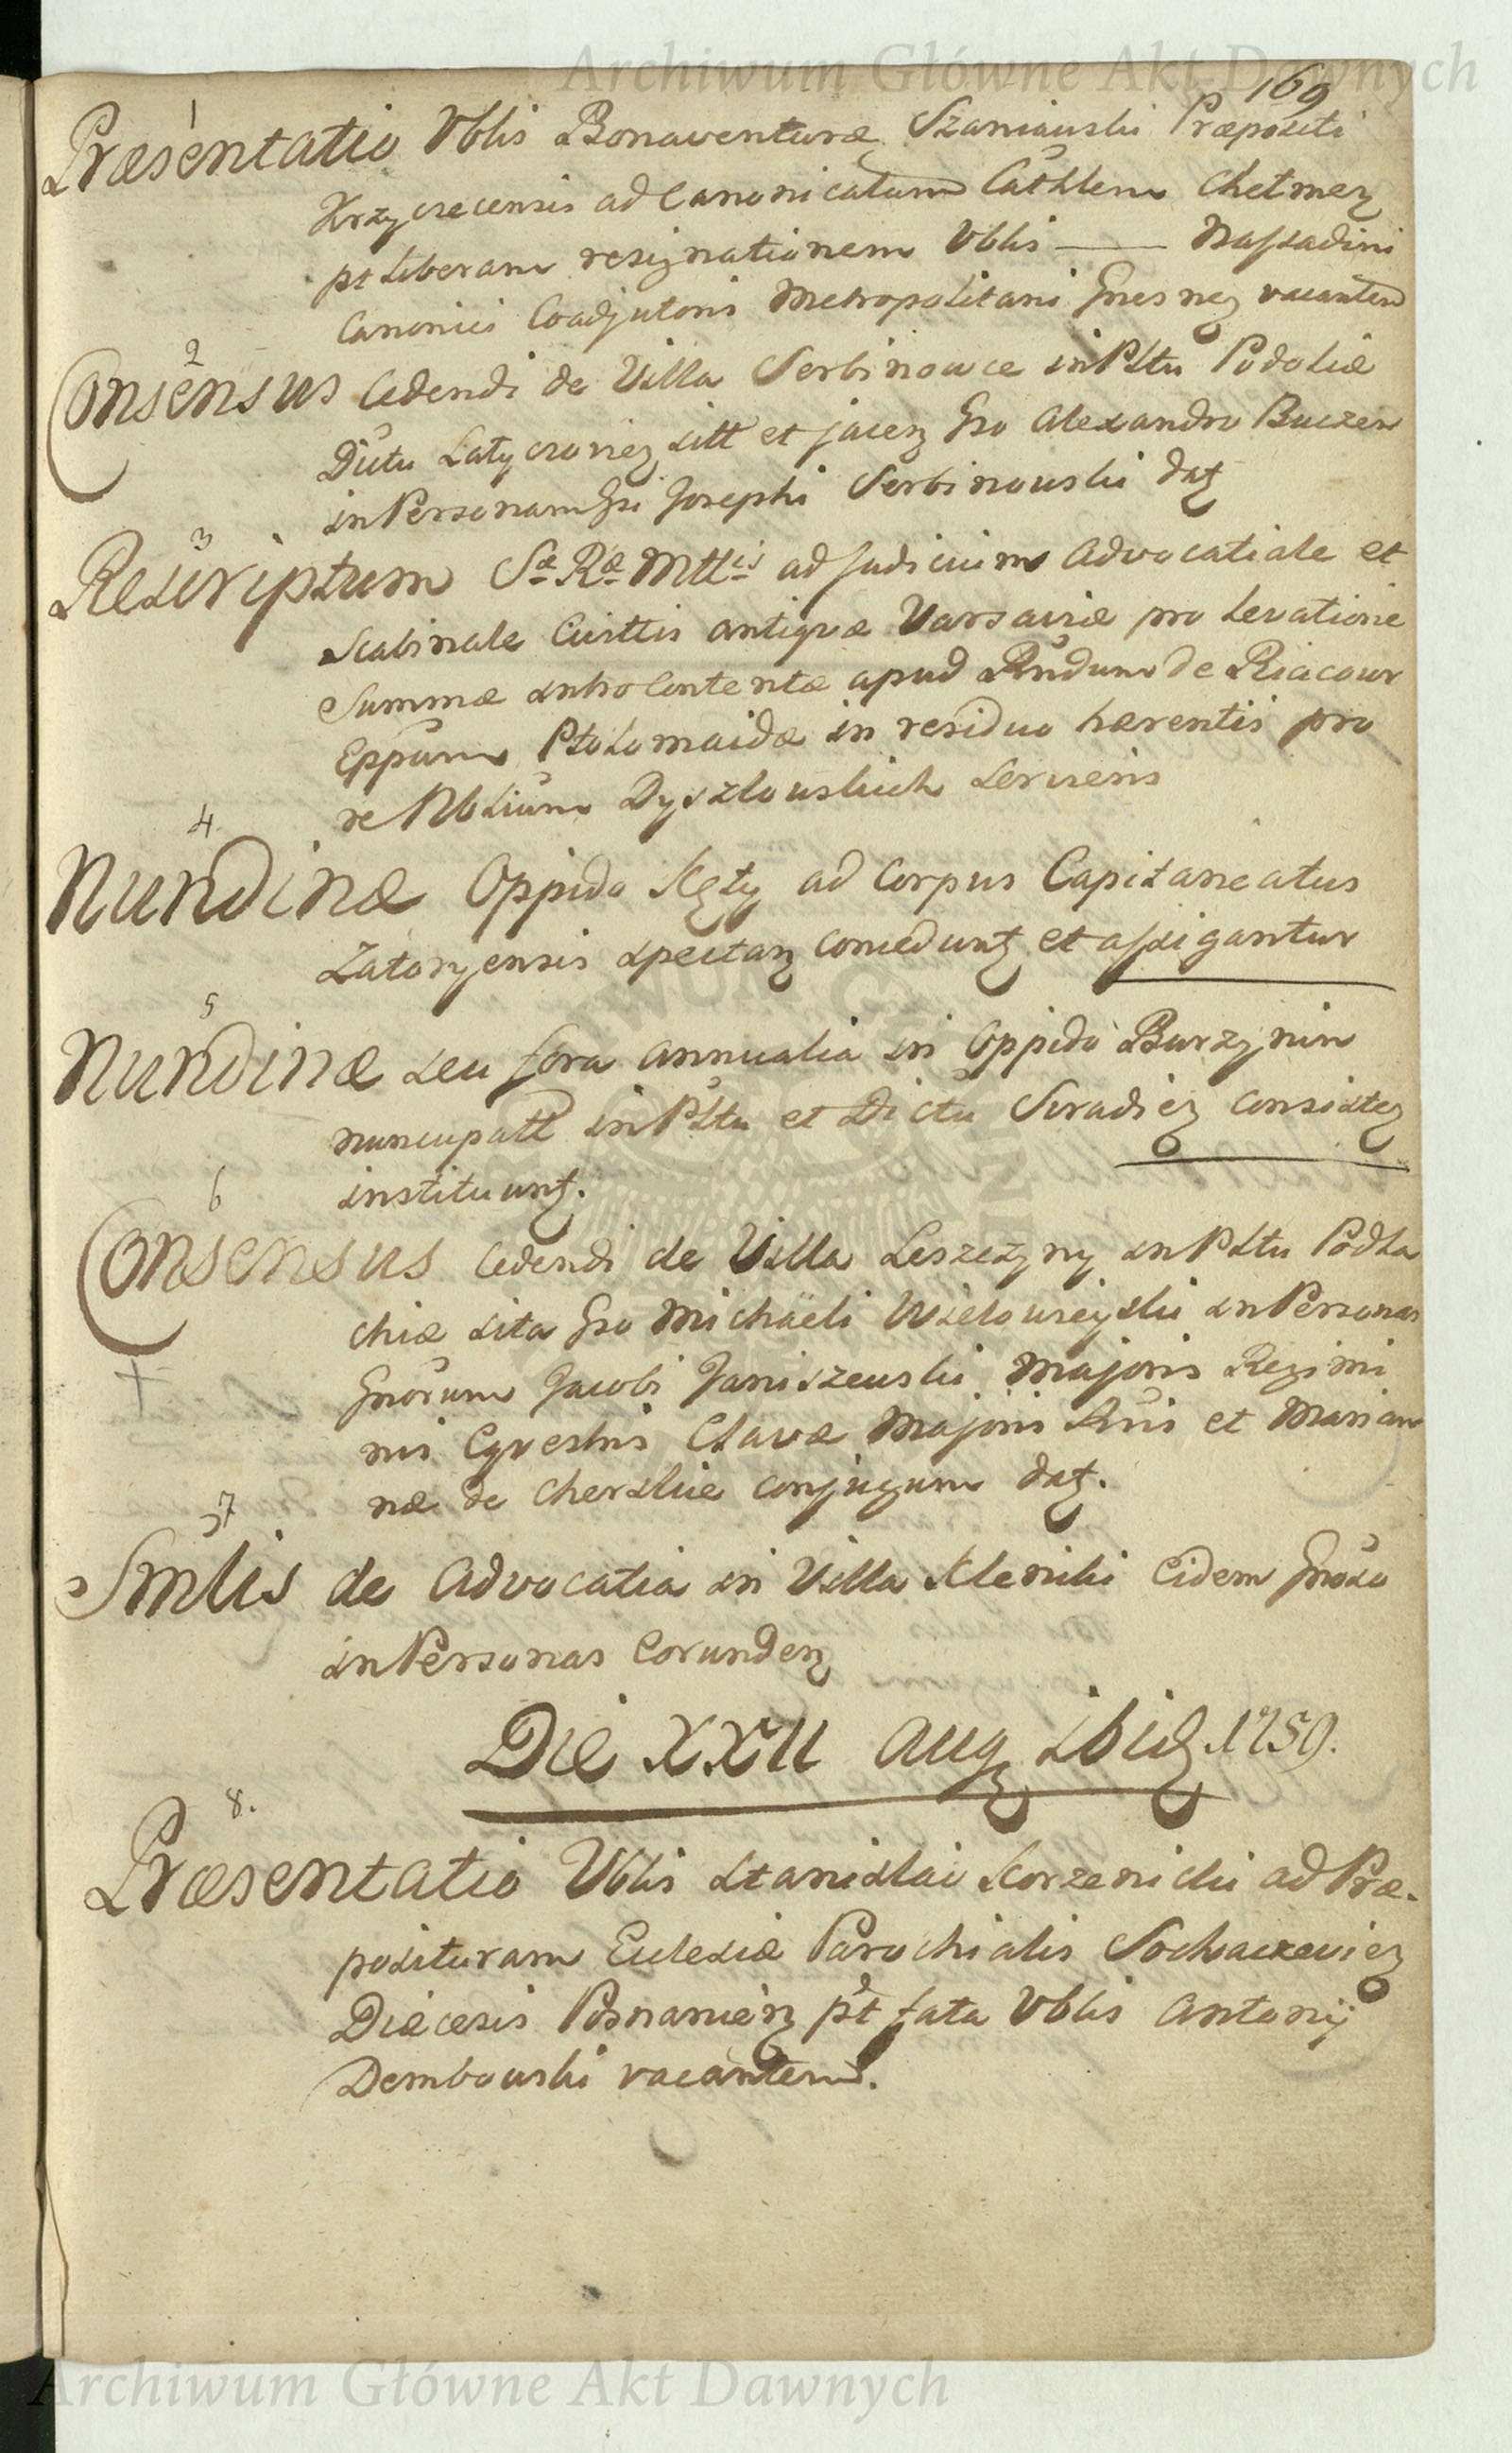 Archiwum Główne Akt Dawnych
169
1
Præsentatio Vblis Bonaventuræ Szaniawski Præpositi
Krzyczecensis ad Canonicatum Cathlem Chelmen
pt liberam resignationem Vblis — Nassadini
Canonici Coadjutoris Metropolitani Gnesnen vacantem
2
Consensus Cedendi de Villa Serbinowce in Pltu Podoliæ
Dictu Latyczovien sitt et jacen Gso Alexandro Buczen
in Personam Gsi Josephi Serbinowski dat
3
Rescriptum Sæ Ræ Mttis ad Judicium Advocatiale et
Scabinale Cuittis antiqvæ Varsaviæ pro levatione
Summæ introcontentæ apud Rndum de Riacour
Eppum Ptolomaidæ in residuo hærentis pro
re Nblium Dyszlowskich serviens
4
Nundinæ Oppido Kęty ad Corpus Capitaneatus
Zatoryensis spectan conceduntur et assigantur
5
Nundinæ seu fora annualia in Oppido Burzynin
nuncupatt in Pltu et Dictu Siradien consisten
instituunt.
6
Consensus Cedendi de Villa Leszczyny in Pltu Podla
chiæ sita Gso Michaëli Wielowieyski in Personas
Gnorum Jacobi Janiszewski Majoris Regimi
nis Eqvestris Clavæ Majoris Rni et Marian
næ de Cherskie conjugum dat.
7
Smlis de Advocatia in Villa Kleniki Eidem Gnoso
in Personas Eorunden
Die XXII Aug ibid. 1759.
8.
Præsentatio Vblis Stanislai Korzenicki ad Præ-
posituram Ecclesiæ Parochialis Sochaczevien
Diæcesis Posnanien pt fata Vblis Antonij
Dembowski vacantem.
Archiwum Główne Akt Dawnych